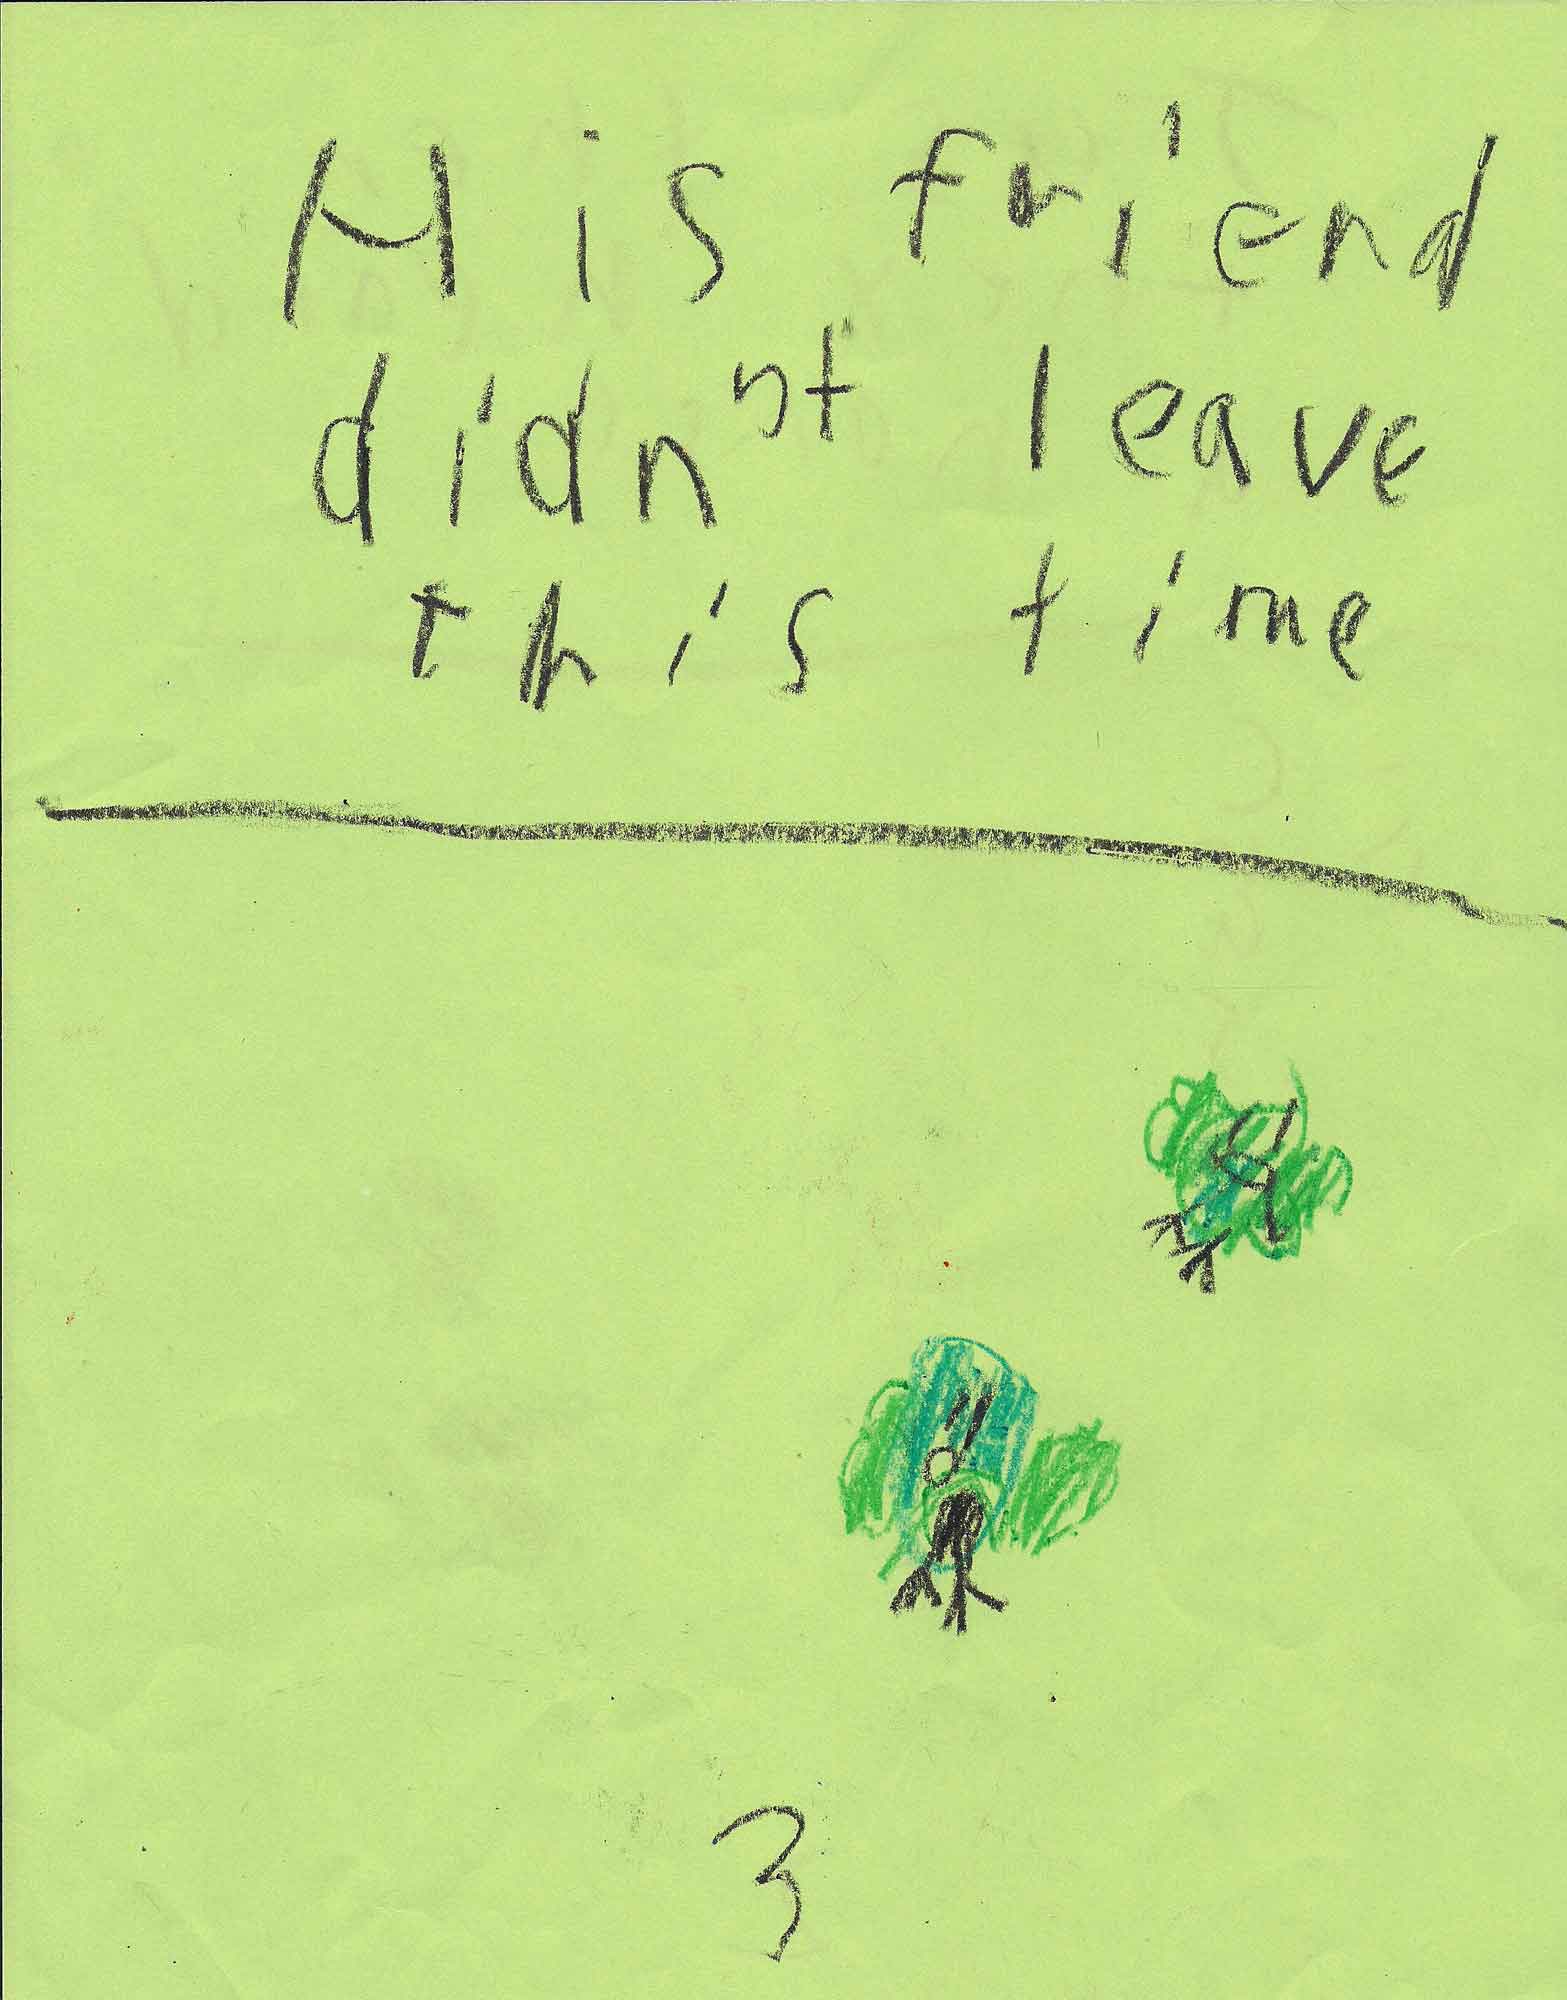 His friend
didn't leave
this time
3